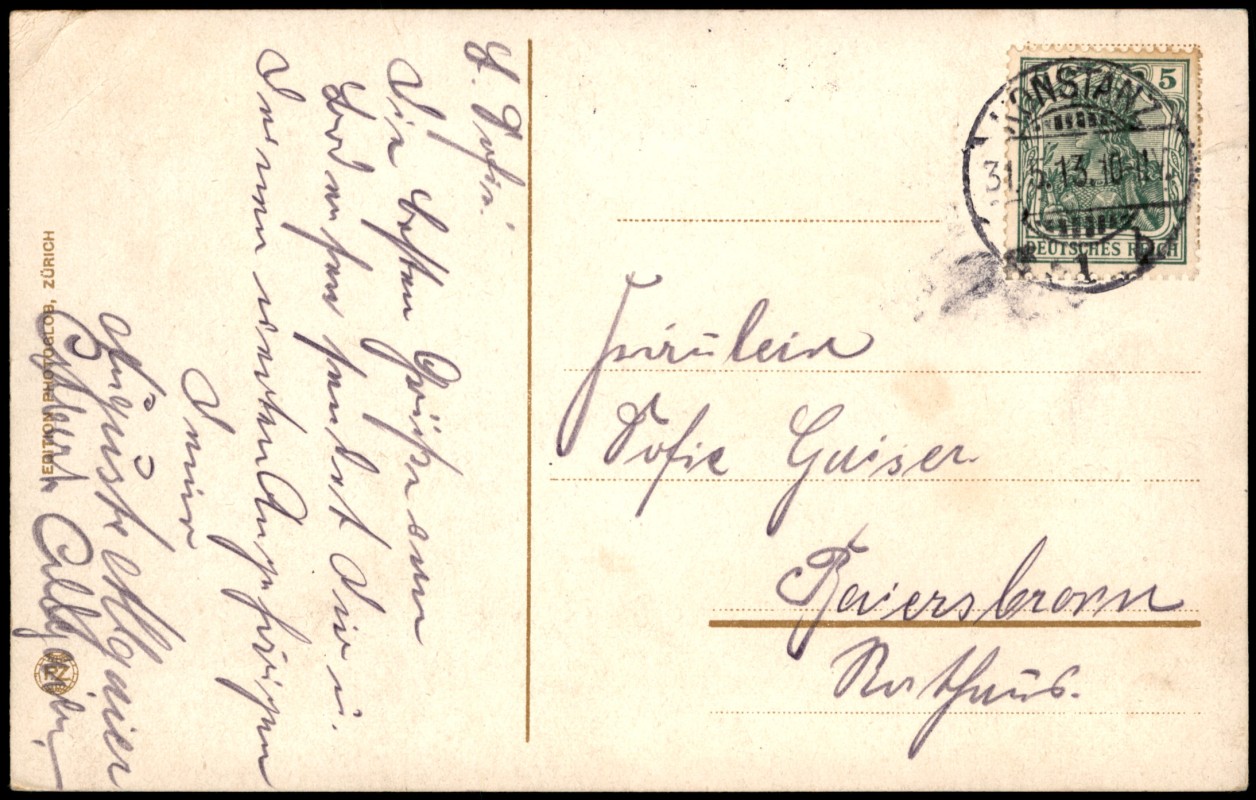 L. Sofie!
Die besten Grüße vom
Bodensee sendet Dir u.
Deinen werten Angehörigen
Deine
Auguste Allgaier
Albert Allgaier.
EDITION PHOTOGLOB, ZÜRICH
5
KONSTANZ
31.5.13.10-11V.
DEUTSCHES REICH
Fräulein
Sofie Gaiser
Baiersbronn
Rathaus.